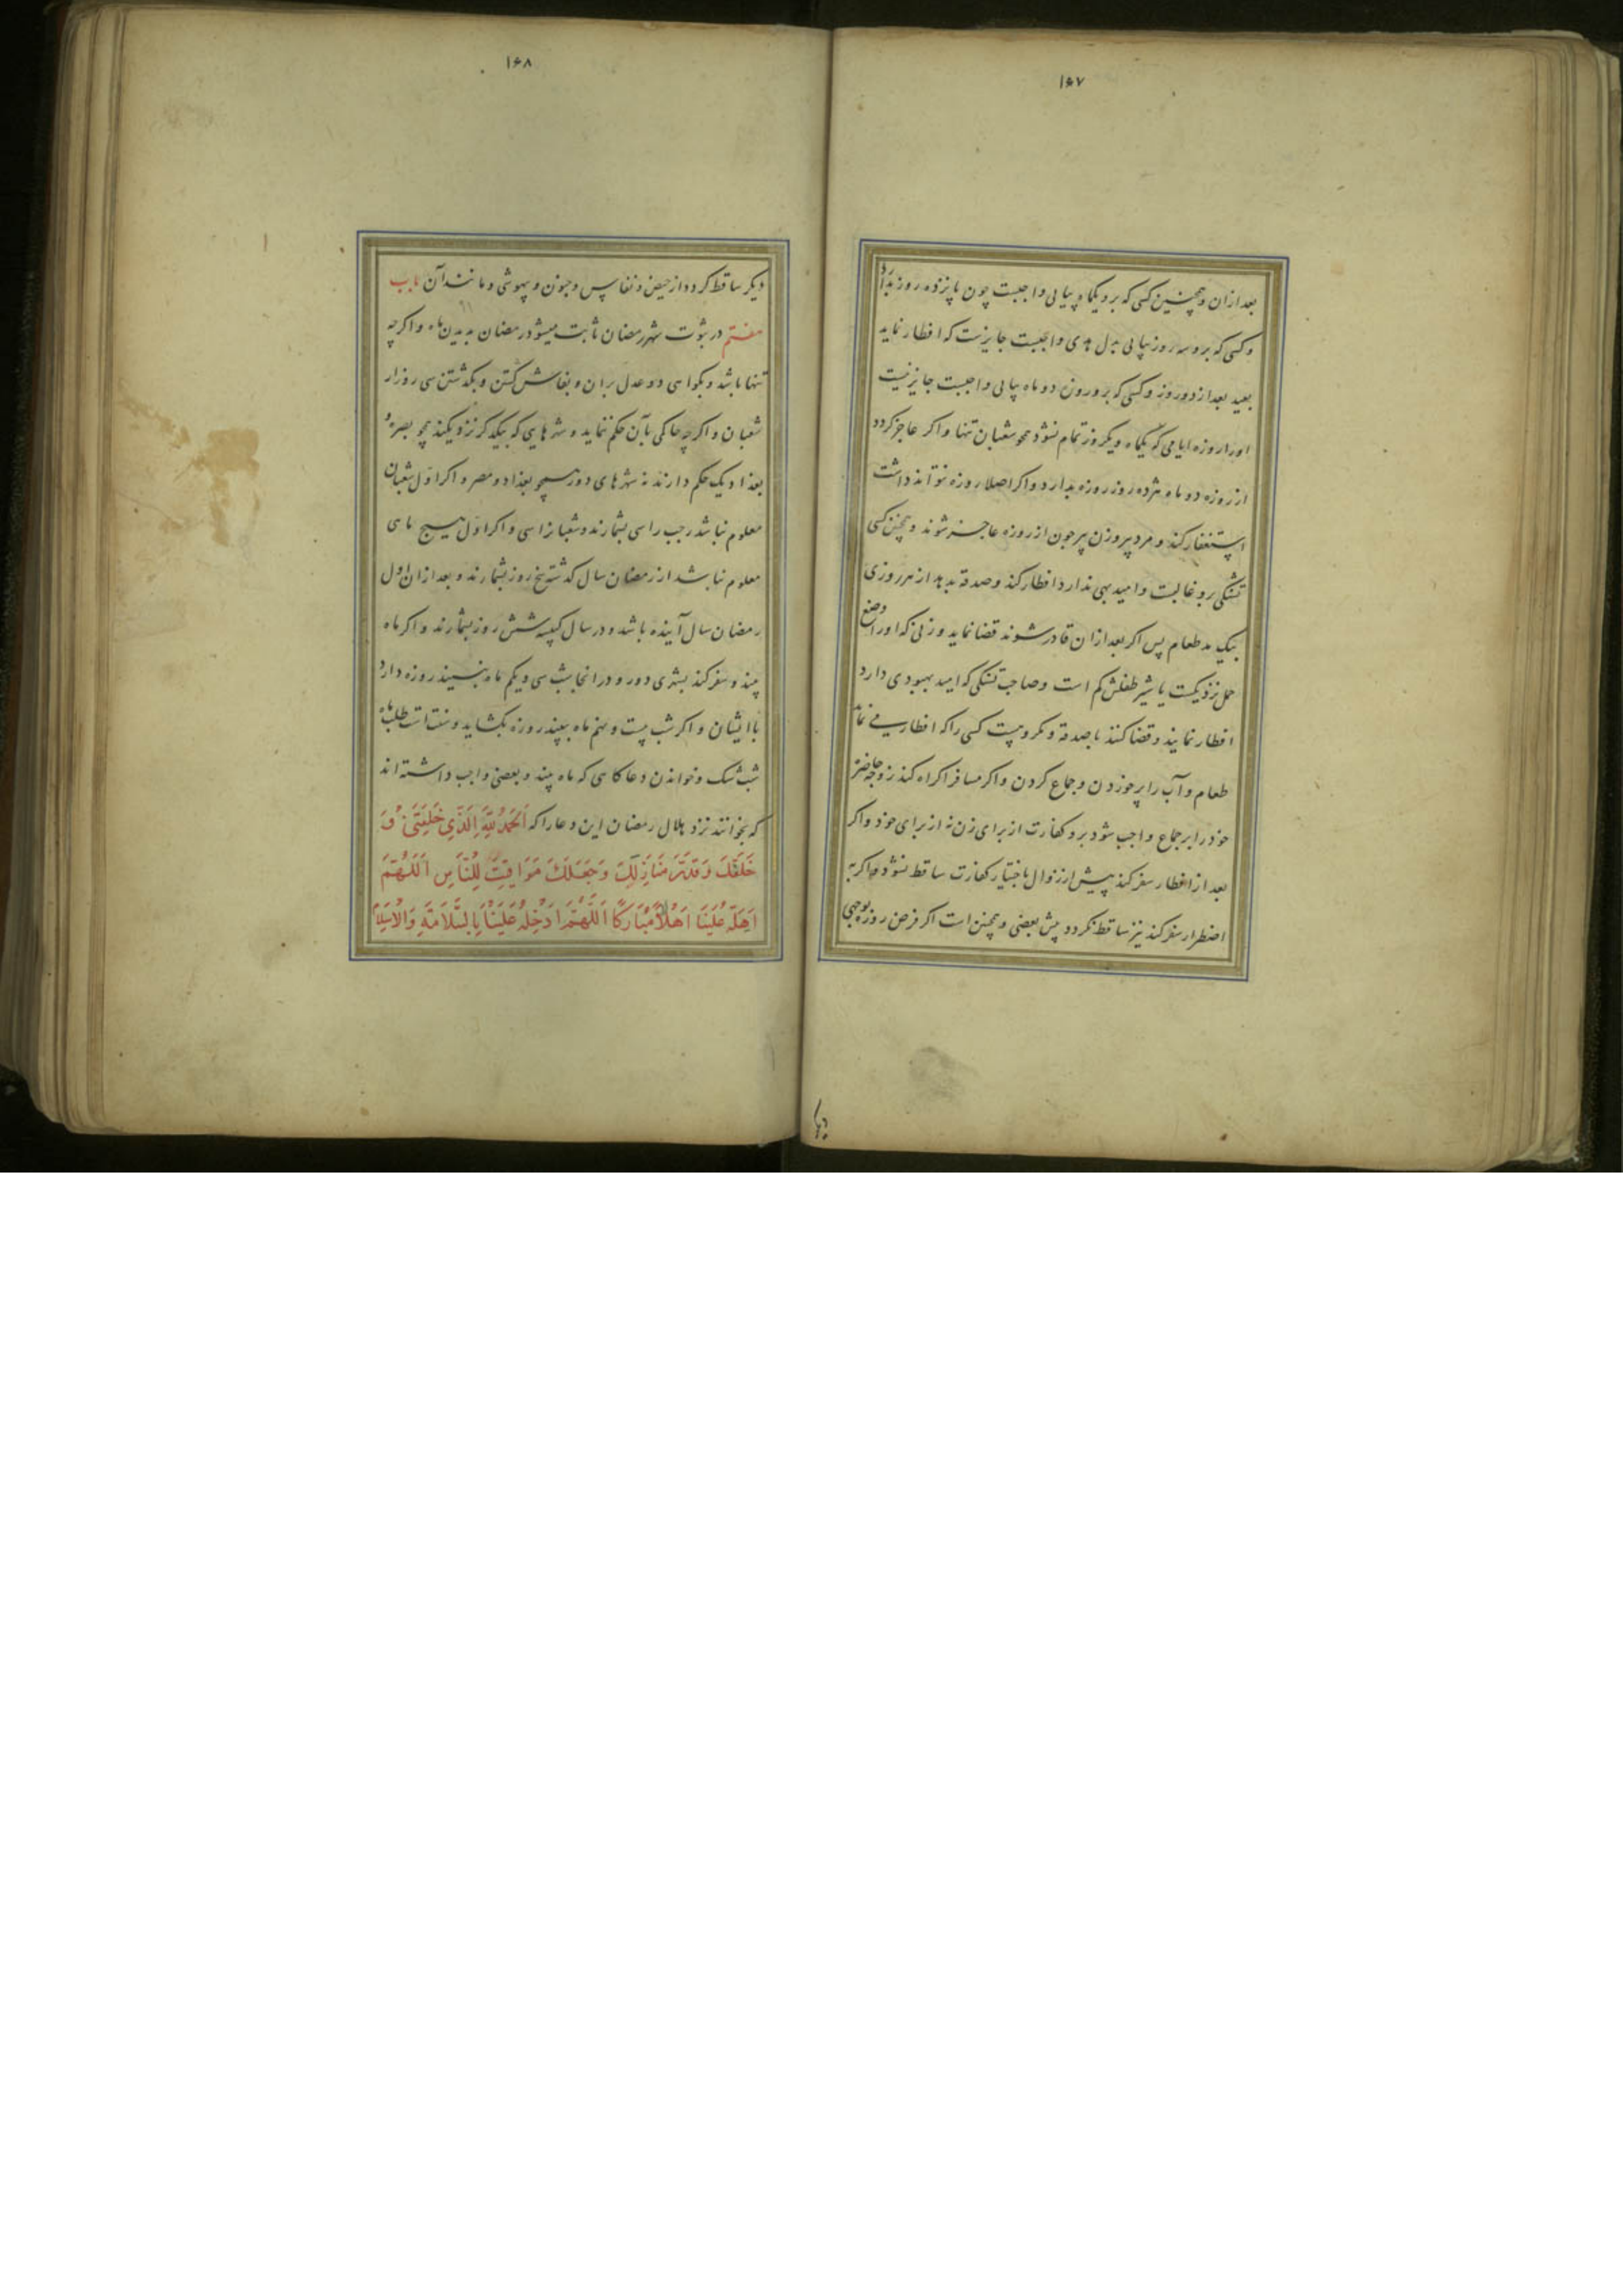 ۱۶۷
بعد ازان و همچنین کسی که برو یکماه پیاپی واجبست چون پانزده روز بدارد
و کسی که برو سه روز پیاپی بدل هدی واجبست جایزست که افطار نماید
بعید بعد از دو روز و کسی که برو روزه دو ماه پیاپی واجبست جایز نیست
اورا روزه ایامی که یکماه و یکروز تمام نشود همچو شعبان تنها و اگر عاجز گردد
از روزه دو ماه هژده روز روزه بدارد و اگر اصلا روزه نتواند داشت
استغفار کند و مرد پیر و زن پیر چون از روزه عاجز شوند و همچنین کسی
تشنگی برو غالبست و امید بهی ندارد افطار کند و صدقه بدهد از هر روزی
بیک مد طعام پس اگر بعد ازان قادر شوند قضا نماید و زنی که اورا وضع
حمل نزدیکست یا شیر طفلش کم است و صاحب تشنگی که امید بهبودی دارد
افطار نمایند و قضا کنند با صدقه و مکروهست کسی را که افطار می نماید
طعام و آب را پر خوردن و جماع کردن و اگر مسافر اکراه کند زوجه حاضر
خود را بر جماع واجب شود برو کفارت از برای زن نه از برای خود و اگر
بعد از افطار سفر کند پیش از زوال باختیار کفارت ساقط نشود و اگر به
اضطرار سفر کند نیز ساقط نگردد پیش بعضی و همچنین است اگر فرض روزه بوجهی
۱۶۸
دیگر ساقط گردد از حیض و نفاس و جنون و بیهوشی و مانند آن باب
هفتم در ثبوت شهر رمضان ثابت میشود رمضان بدیدن ماه و اگرچه
تنها باشد و بگواهی دو عدل بران و بفاش گشتن و بگذشتن سی روز از
شعبان و اگرچه حاکمی بآن حکم ننماید و شهرهایی که بیکدیگر نزدیکند همچو بصره و
بغداد یک حکم دارند نه شهرهای دور همچو بغداد و مصر و اگر اول شعبان
معلوم نباشد رجب را سی بشمارند و شعبانرا سی و اگر اول هیچ ماهی
معلوم نباشد از رمضان سال گذشته پنج روز بشمارند و بعد ازان اول
رمضان سال آینده باشد و در سال کبیسه شش روز بشمارند و اگر ماه
بیند و سفر کند بشهری دور و در انجا شب سی و یکم ماه ببینند روزه دارد
با ایشان و اگر شب بیست و نهم ماه ببیند روزه بگشاید و سنت است طلب ماه
شب شک و خواندن دعا کاسی که ماه بیند و بعضی واجب داشته اند
که بخوانند نزد هلال رمضان این دعا را که اَلْحَمْدُ لِلَّهِ الَّذِي خَلَقَنِي وَ
خَلَقَكَ وَقَدَّرَ مَنَازِلَكَ وَجَعَلَكَ مَوَاقِيتَ لِلنَّاسِ اَللَّهُمَّ
اَهِلَّهُ عَلَيْنَا اِهْلَالًا مُبَارَكًا اَللَّهُمَّ اَدْخِلْهُ عَلَيْنَا بِالسَّلَامَةِ وَالْاِسْلَامِ